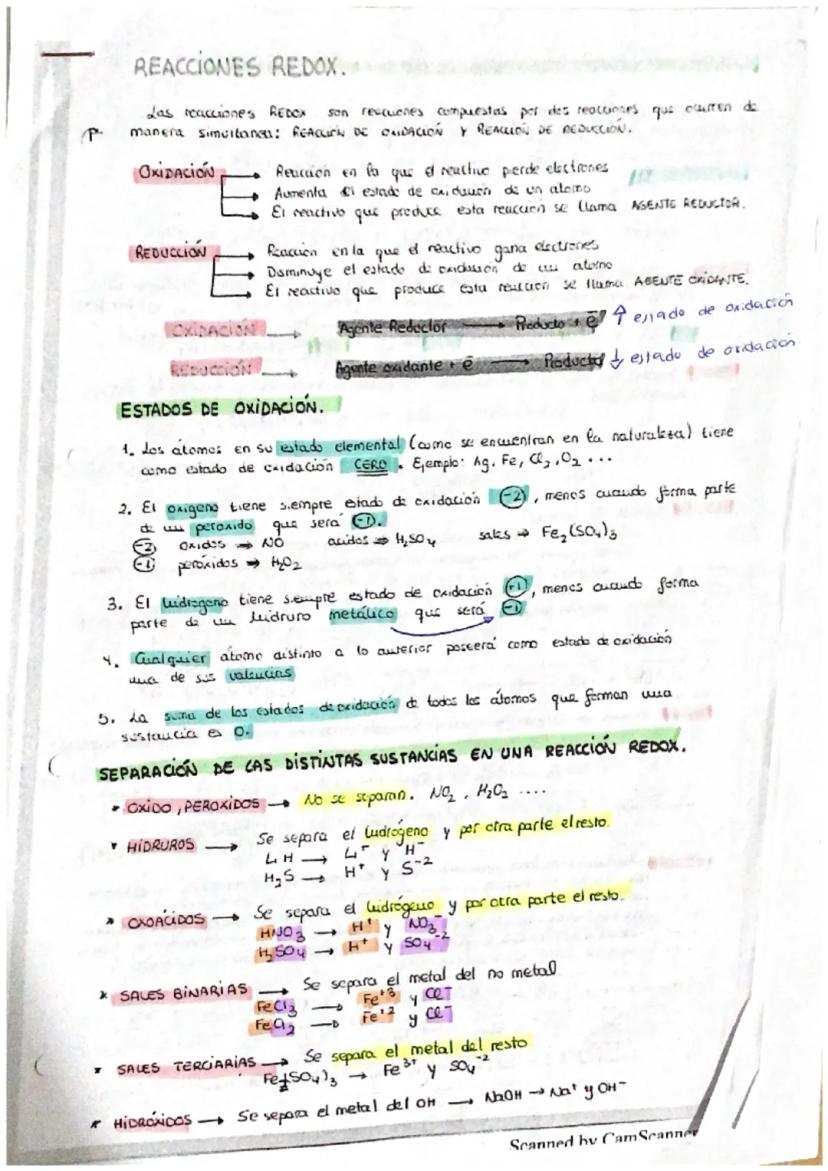 REACCIONES REDOX.
Las reacciones REDOX son reacciones compuestas por dos reacciones que ocurren de
manera simultanea: REACCIÓN DE OXIDACIÓN Y REACCIÓN DE REDUCCIÓN.
OXIDACIÓN → Reacción en la que el reactivo pierde electrones
→ Aumenta el estado de oxidación de un atomo
→ El reactivo que produce esta reacción se llama AGENTE REDUCTOR.
REDUCCIÓN → Reacción en la que el reactivo gana electrones
→ Disminuye el estado de oxidación de un atomo
→ El reactivo que produce esta reacción se llama AGENTE OXIDANTE.
OXIDACIÓN → Agente Reductor → Producto + ē ↑ estado de oxidación
REDUCCIÓN → Agente oxidante + ē → Producto ↓ estado de oxidación
ESTADOS DE OXIDACIÓN.
1. Los átomos en su estado elemental (como se encuentran en la naturaleza) tiene
como estado de oxidación CERO. Ejemplo: Ag, Fe, Cl₂, O₂ ...
2. El oxígeno tiene siempre estado de oxidación (-2), menos cuando forma parte
de un peroxido que será (-1).
(-2) oxidos → NO acidos → H₂SO₄ sales → Fe₂(SO₄)₃
(-1) peróxidos → H₂O₂
3. El hidrógeno tiene siempre estado de oxidación (+1), menos cuando forma
parte de un hidruro metálico que será (-1)
4. Cualquier átomo distinto a lo anterior poseerá como estado de oxidación
una de sus valencias
5. La suma de los estados de oxidación de todos los átomos que forman una
sustancia es 0.
SEPARACIÓN DE LAS DISTINTAS SUSTANCIAS EN UNA REACCIÓN REDOX.
• OXIDO, PEROXIDOS → No se separan. NO₂, H₂O₂ ....
• HIDRUROS → Se separa el hidrógeno y por otra parte el resto.
LiH → Li⁺ y H⁻
H₂S → H⁺ y S⁻²
• OXOACIDOS → Se separa el hidrógeno y por otra parte el resto.
HNO₃ → H⁺ y NO₃⁻
H₂SO₄ → H⁺ y SO₄⁻²
• SALES BINARIAS → Se separa el metal del no metal
FeCl₃ → Fe⁺³ y Cl⁻
FeCl₂ → Fe⁺² y Cl⁻
• SALES TERCIARIAS → Se separa el metal del resto
Fe₂(SO₄)₃ → Fe³⁺ y SO₄⁻²
• HIDRÓXIDOS → Se separa el metal del OH → NaOH → Na⁺ y OH⁻
Scanned by CamScanner